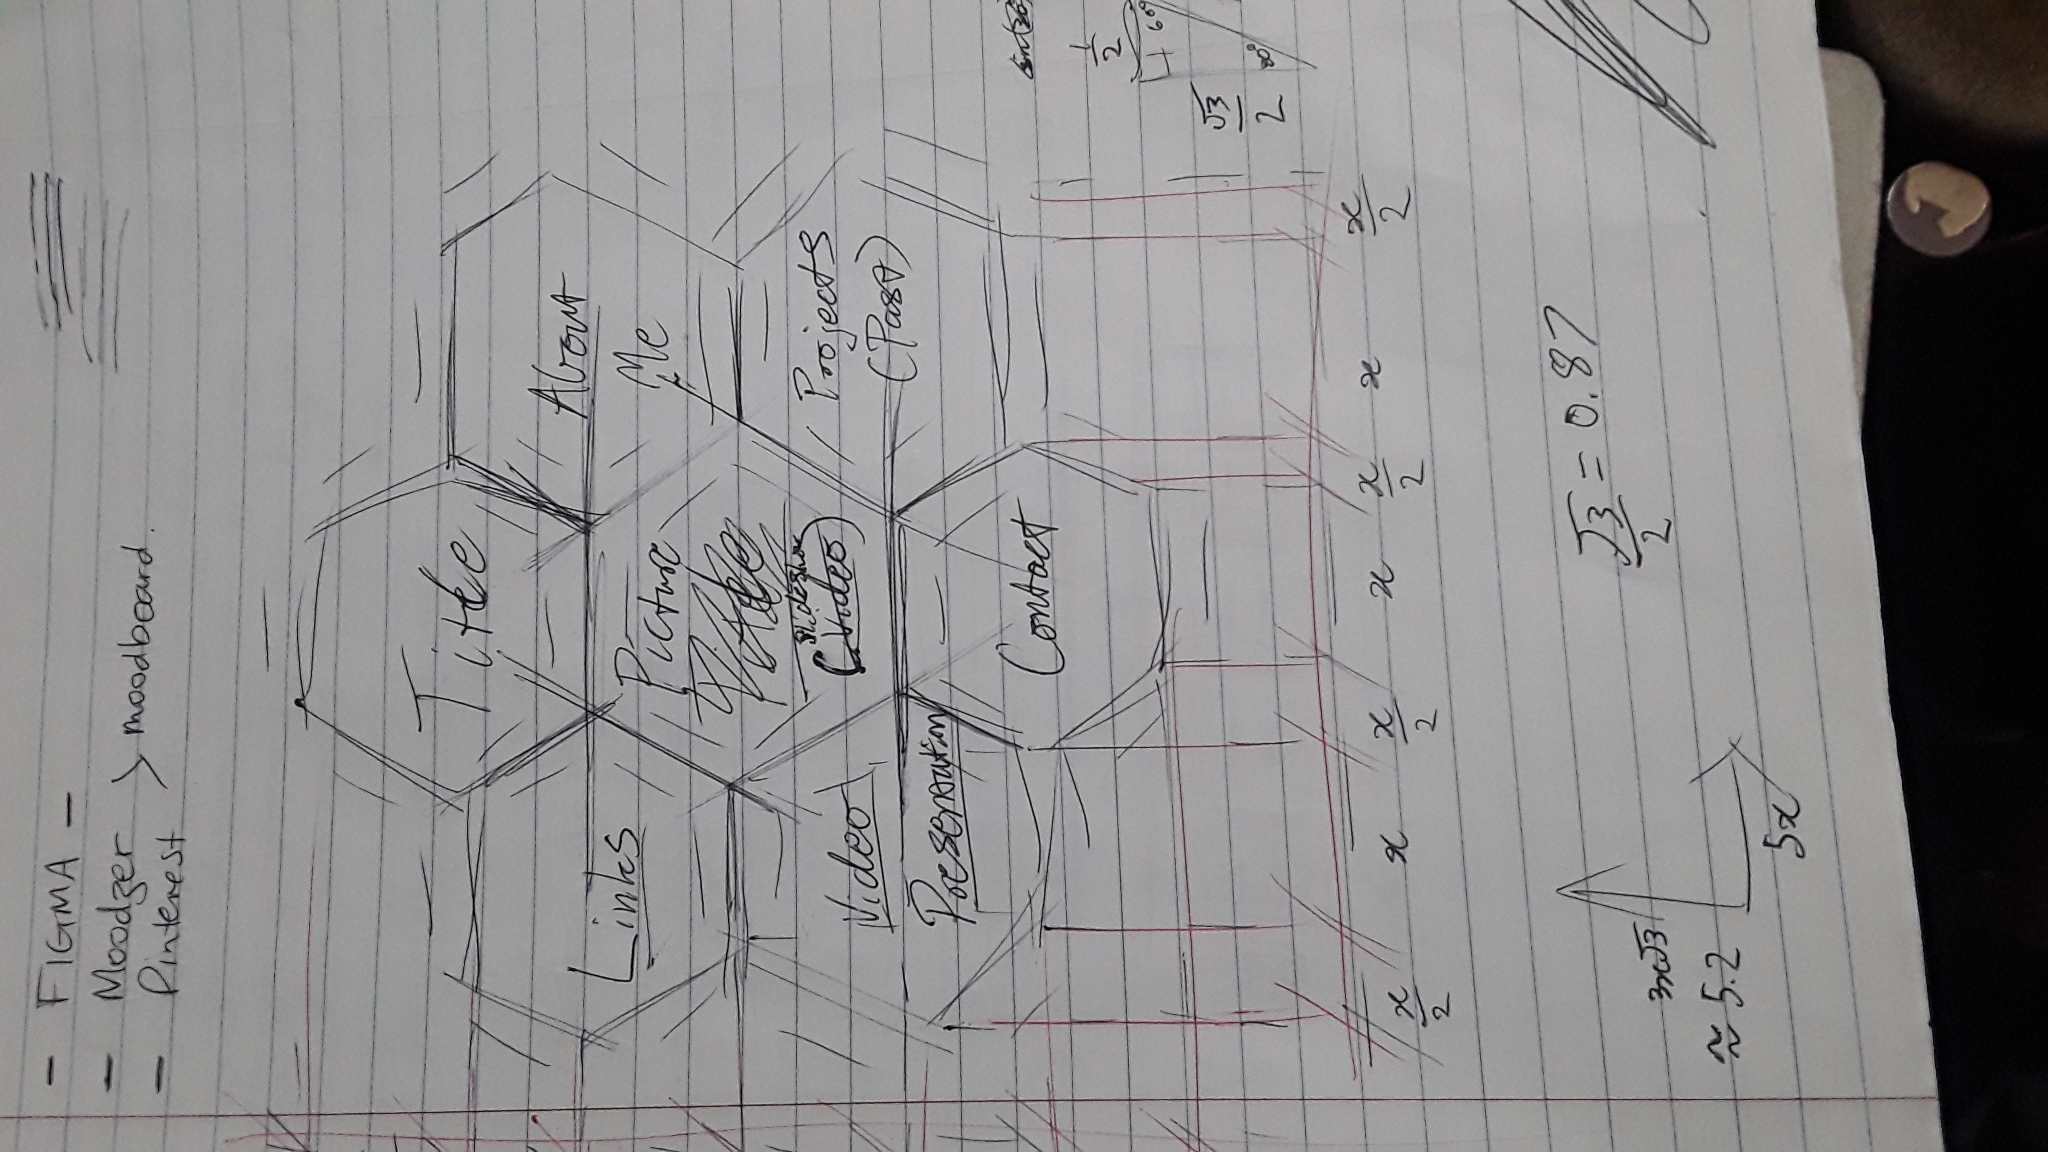 - FIGMA -
- Moodzer
- Pinterest
> moodboard.
Title
Links
About
Me
Picture
slideshow
(Video)
Video
Presentation
Projects
(Past)
Contact
1/2
60°
√3/2
30°
x/2 x x/2 x x/2 x x/2
3x√3
≈ 5.2
5x
√3/2 = 0.87